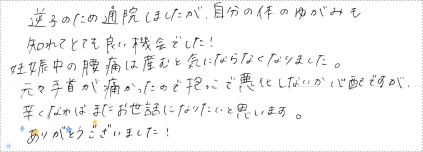 逆子のため通院しましたが、自分の体のゆがみも
知れてとても良い機会でした!
妊娠中の腰痛は産むと気にならなくなりました。
元々手首が痛かったので抱っこで悪化しないか心配ですが、
辛くなればまたお世話になりたいと思います。
ありがとうございました!